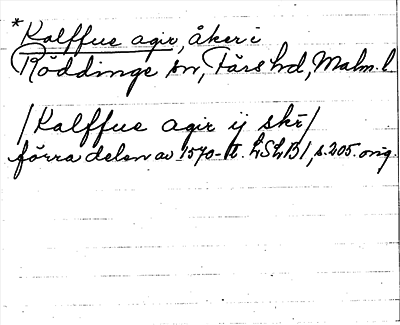 *Kalffue agir, åker i
Röddinge sn, Färs hd, Malm. l
/Kalffue agir ij skr/
förra delen av 1570-t. LSLB1, s. 205. orig.